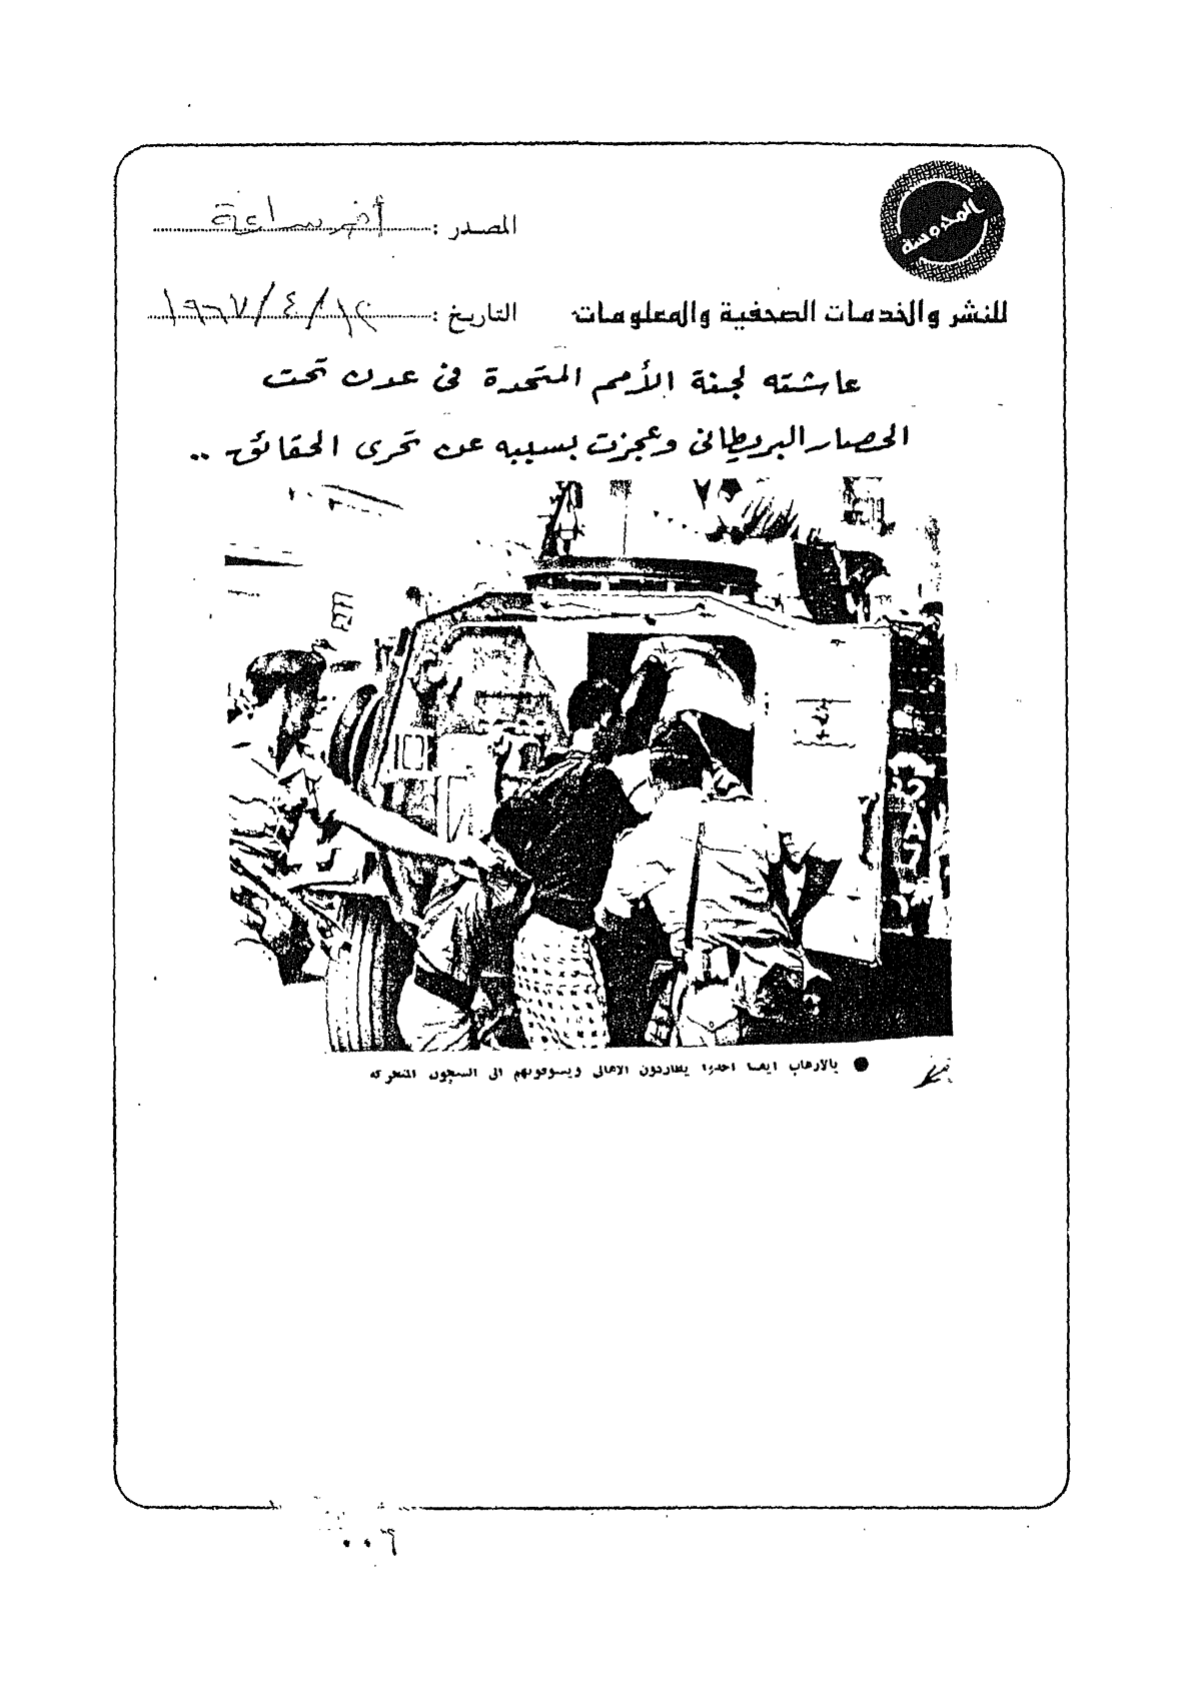 المحروسة
للنشر والخدمات الصحفية والمعلومات
المصدر : آخر ساعة
التاريخ : ١٢ / ٤ / ١٩٦٧
عاشته لجنة الأمم المتحدة فى عدن تحت
الحصار البريطانى وعجزت بسببه عن تحرى الحقائق ..
A
7
● بالارهاب ايضا اخذوا يطاردون الاهالى ويسوقونهم الى السجون المتحركة